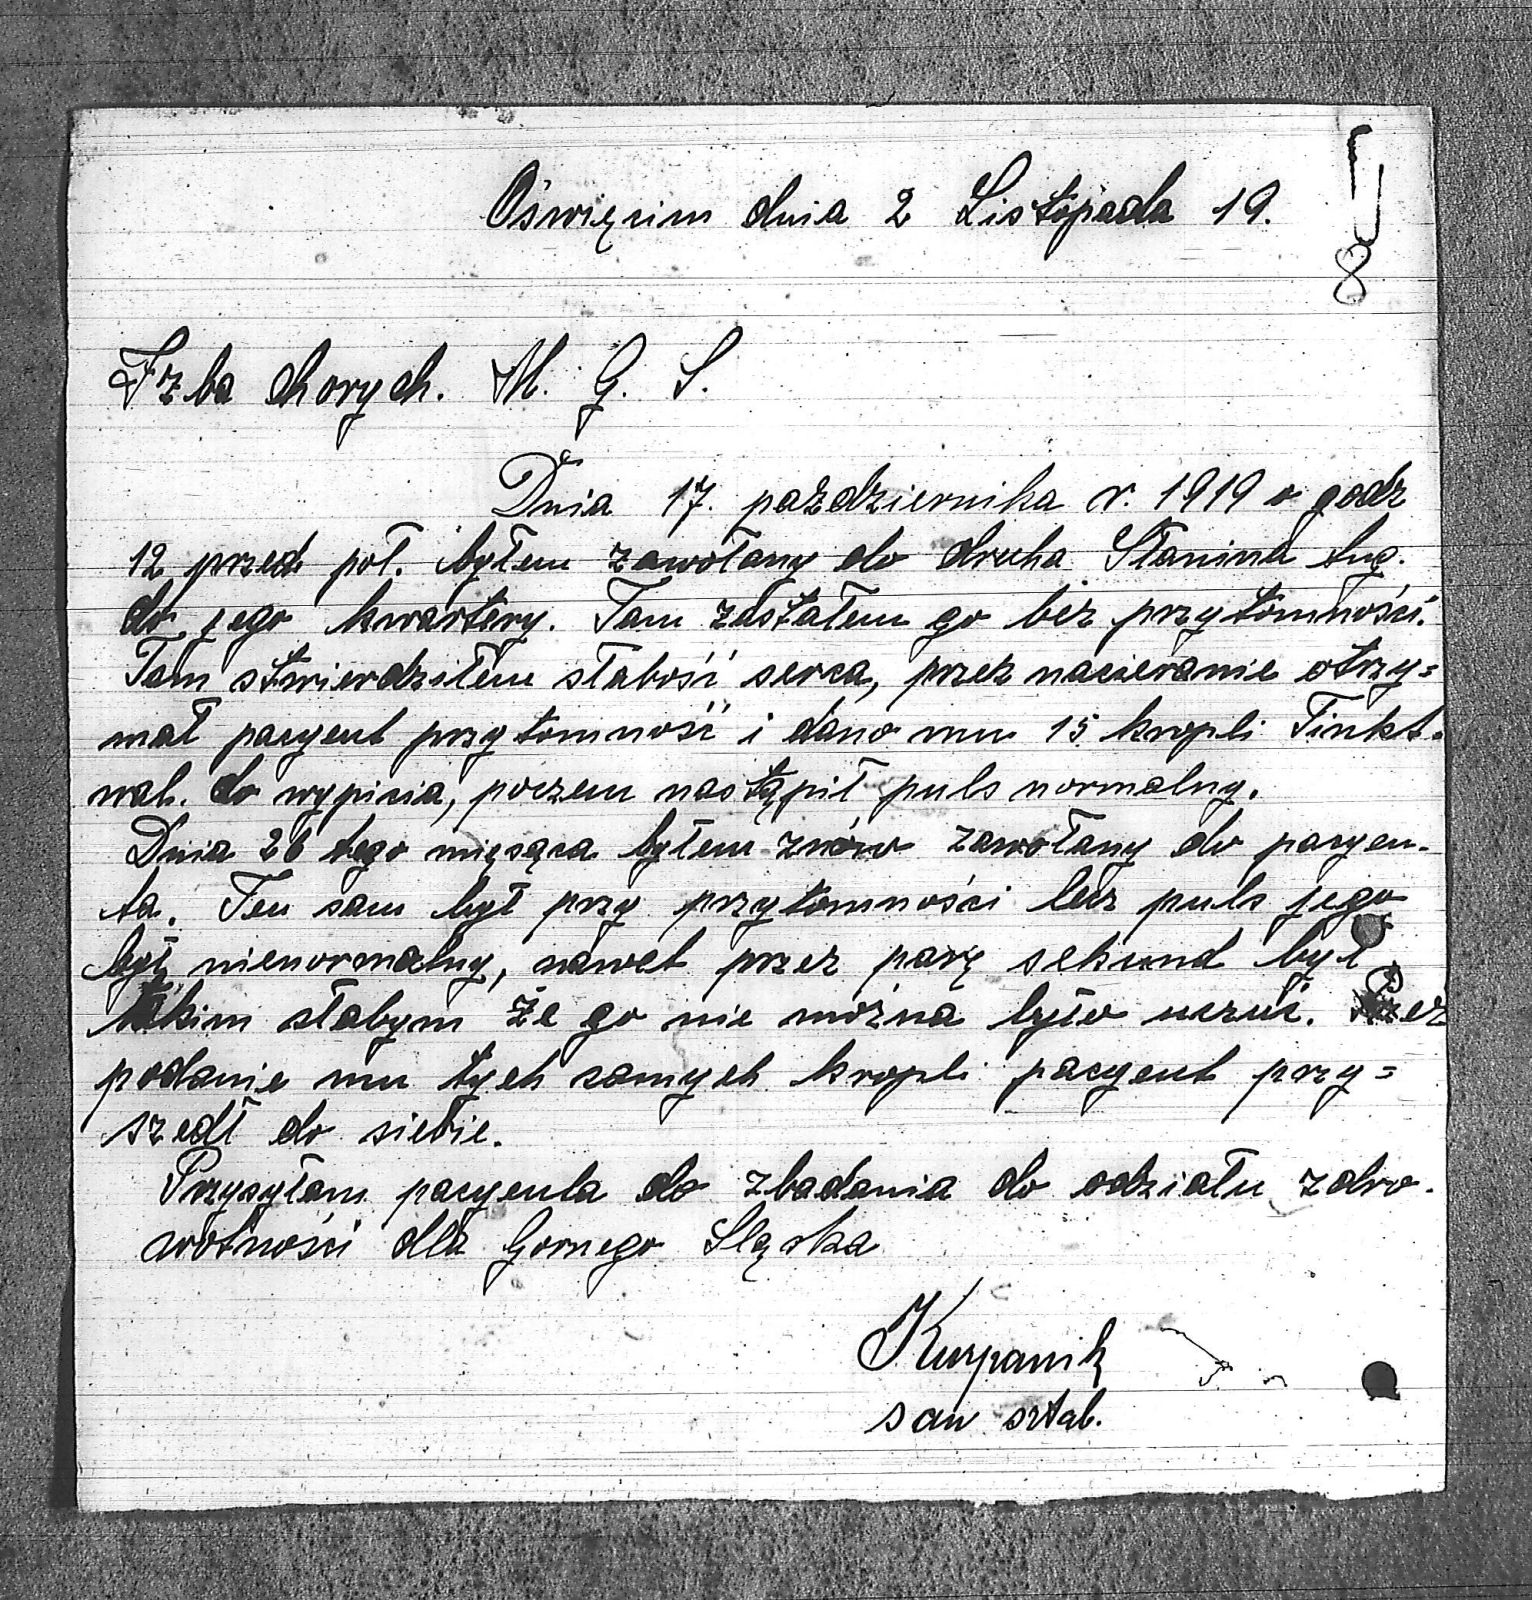 Oświęcim dnia 2 Listopada 19.
8
Izba chorych. M. G. S.
Dnia 17. października r. 1919 o godz
12 przed poł. byłem zawołany do druha Stanina Aug.
do jego kwartery. Tam zastałem go bez przytomności.
Tam stwierdziłem słabość serca, przez nacieranie otrzy=
mał pacyent przytomność i dano mu 15 kropli Tinkt.
wal. do wypicia, poczem nastąpił puls normalny.
Dnia 26 tego miesąca byłem znów zawołany do pacyen-
ta. Ten sam był przy przytomności lecz puls jego
był nienormalny, nawet przez parę sekund był
takim słabym że go nie można było uczuć. Przez
podanie mu tych samych kropli pacyent przy=
szedł do siebie.
Przysyłam pacyenta do zbadania do odziału zdro-
wotności dla Gornego Sląska
Kurpanik
san sztab.